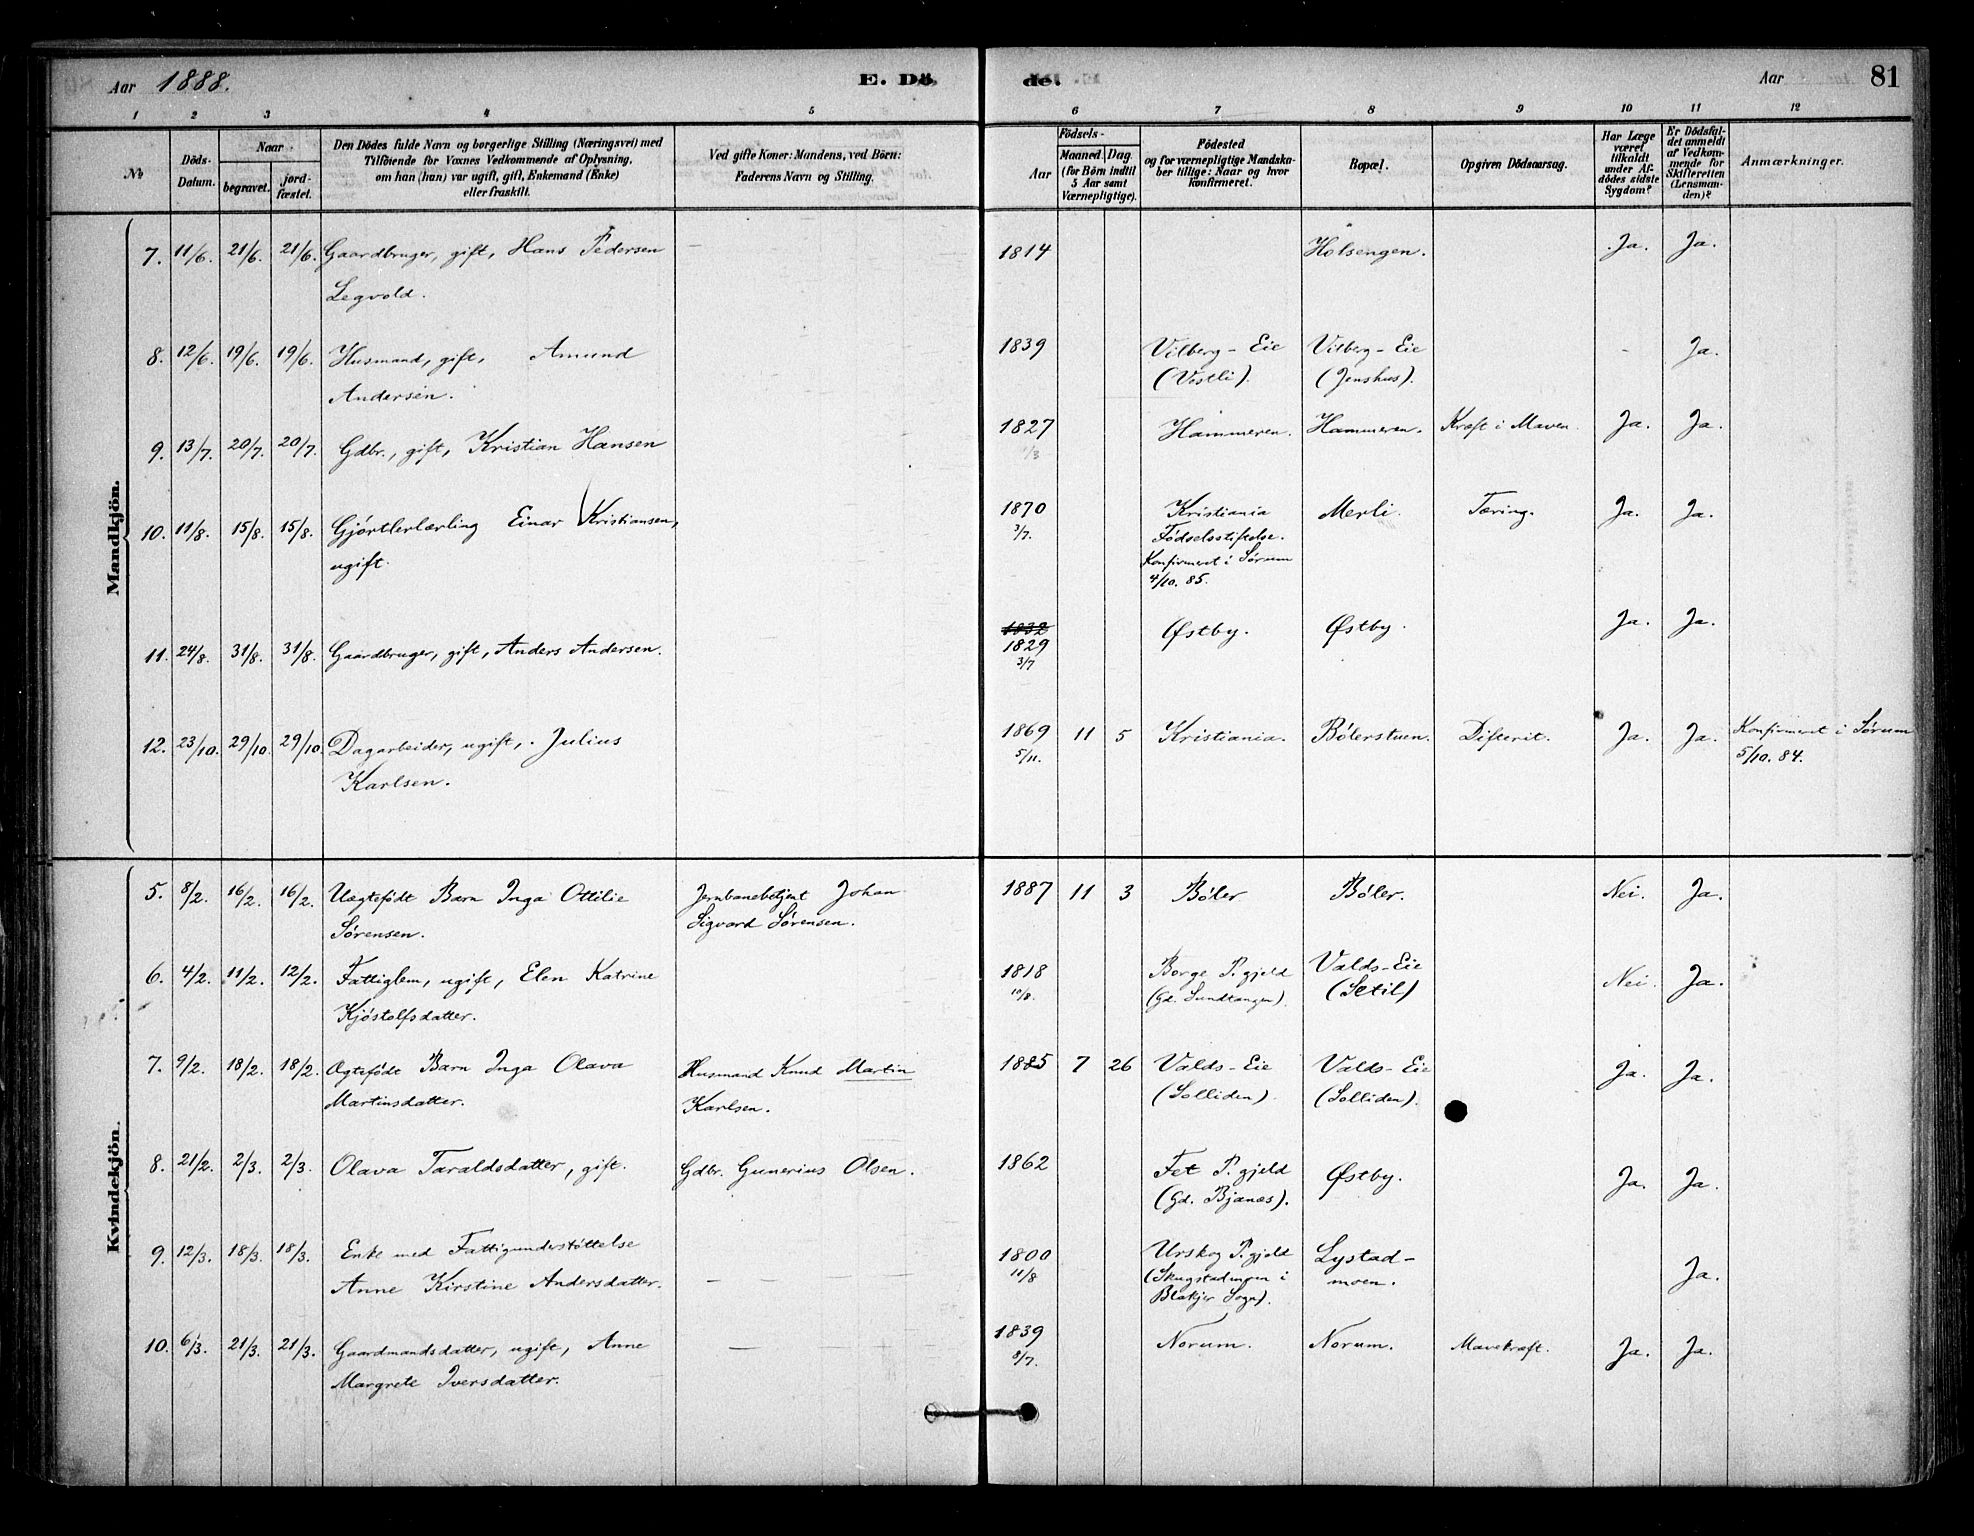 Aar 1888. E. Dö de. Aar 81
1 2 3 4 5 6 7 8 9 10 11 12
No
Döds-Datum.
Naar
begravet. jord-fæstet.
Den Dödes fulde Navn og borgerlige Stilling (Næringsvei) med
Tilföiende for Voxnes Vedkommende af Oplysning,
om han (hun) var ugift, gift, Enkemand (Enke)
eller fraskilt.
Ved gifte Koner: Mandens, ved Börn:
Faderens Navn og Stilling.
Födsels-
Aar
Maaned. Dag.
(for Börn indtil
5 Aar samt
Værnepligtige).
Födested
og for værnepligtige Mandska-
ber tillige: Naar og hvor
konfirmeret.
Bopæl.
Opgiven Dödsaarsag.
Har Læge
været
tilkaldt
under Af-
dödes sidste
Sygdom?
Er Dödsfal-
det anmeldt
af Vedkom-
mende for
Skifteretten
(Lensman-
den)?
Anmærkninger.
Mandkjön.
7. 11/6. 21/6. 21/6. Gaardbruger, gift, Hans Pedersen 1814 Holsengen. Ja. Ja.
Legvold.
8. 12/6. 19/6. 19/6. Husmand, gift, Amund 1839 Vilberg-Eie Vilberg-Eie - Ja.
Andersen. (Vestli). (Jenshus).
9. 13/7. 20/7. 20/7. Gdbr., gift, Kristian Hansen 1827 Hammeren. Hammeren. Kræft i Maven. Ja. Ja.
1/3
10. 11/8. 15/8. 15/8. Gjørtlerlærling Einar Kristiansen, 1870 Kristiania Merli. Tæring. Ja. Ja.
ugift. 3/7. Fødselsstiftelse.
Konfirmeret i Sørum
4/10. 85.
11. 24/8. 31/8. 31/8. Gaardbruger, gift, Anders Andersen. 1832 Østby. Østby. Ja. Ja.
1829
3/7
12. 23/10. 29/10. 29/10 Dagarbeider, ugift, Julius 1869 11 5 Kristiania. Bølerstuen. Difterit. Ja. Ja. Konfirmeret i Sørum
Karlsen. 5/11. 5/10. 84.
Kvindekjön.
5. 8/2. 16/2. 16/2. Uægtefødt Barn Inga Ottilie Jernbanebetjent Johan 1887 11 3 Bøler Bøler. Nei. Ja.
Sørensen. Sigvard Sørensen.
6. 4/2. 11/2. 12/2. Fattiglem, ugift, Elen Katrine 1818 Borge P. gjeld Valds-Eie Nei. Ja.
Kjøstolfsdatter. 10/8. (Gd. Sundtangen). (Setil)
7. 9/2. 18/2. 18/2. Ægtefødt Barn Inga Olava Husmand Knud Martin 1885 7 26 Valds-Eie Valds-Eie Ja. Ja.
Martinsdatter. Karlsen. (Solliden). (Solliden).
8. 21/2. 2/3. 2/3. Olava Taraldsdatter, gift. Gdbr. Gunerius Olsen. 1862 Fet P. gjeld Østby. Ja. Ja.
(Gd. Bjanæs).
9. 12/3. 18/3. 18/3. Enke med Fattigunderstøttelse 1800 Urskog P. gjeld Lystad- Ja.
Anne Kirstine Andersdatter. — — 11/8 (Skugstadengen i moen.
Blakjer Sogn).
10. 6/3. 21/3. 21/3. Gaardmandsdatter, ugift, Anne — — 1839 Norum. Norum. Mavekræft. Ja. Ja.
Margrete Iversdatter. 8/7.